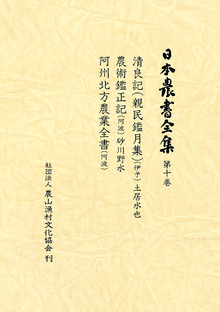 日本農書全集 第十巻
清良記(親民鑑月集)(伊予) 土居水也
農術鑑正記(阿波) 砂川野水
阿州北方農業全書(阿波)
社団法人 農山漁村文化協会 刊